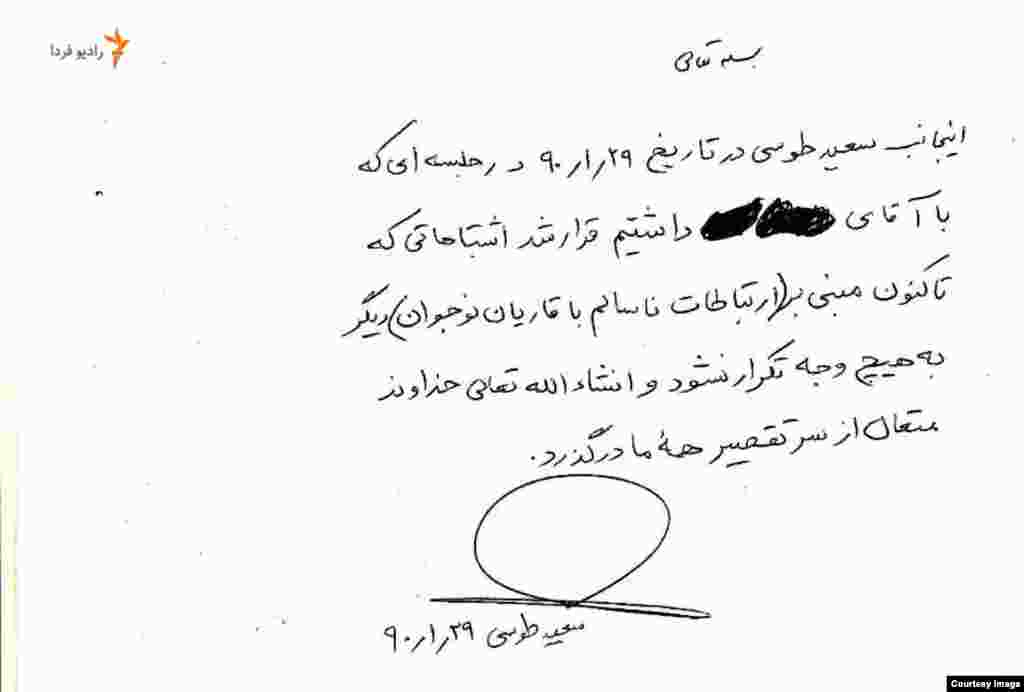 رادیو فردا
بسمه تعالی
اینجانب سعید طوسی در تاریخ ۹۰/۱/۲۹ در جلسه ای که
با آقای داشتیم قرار شد اشتباهاتی که
تاکنون مبنی بر (ارتباطات ناسالم با قاریان نوجوان) دیگر
به هیچ وجه تکرار نشود و انشاءالله تعالی خداوند
متعال از سر تقصیر همهٔ ما درگذرد.
سعید طوسی ۹۰/۱/۲۹
Courtesy Image